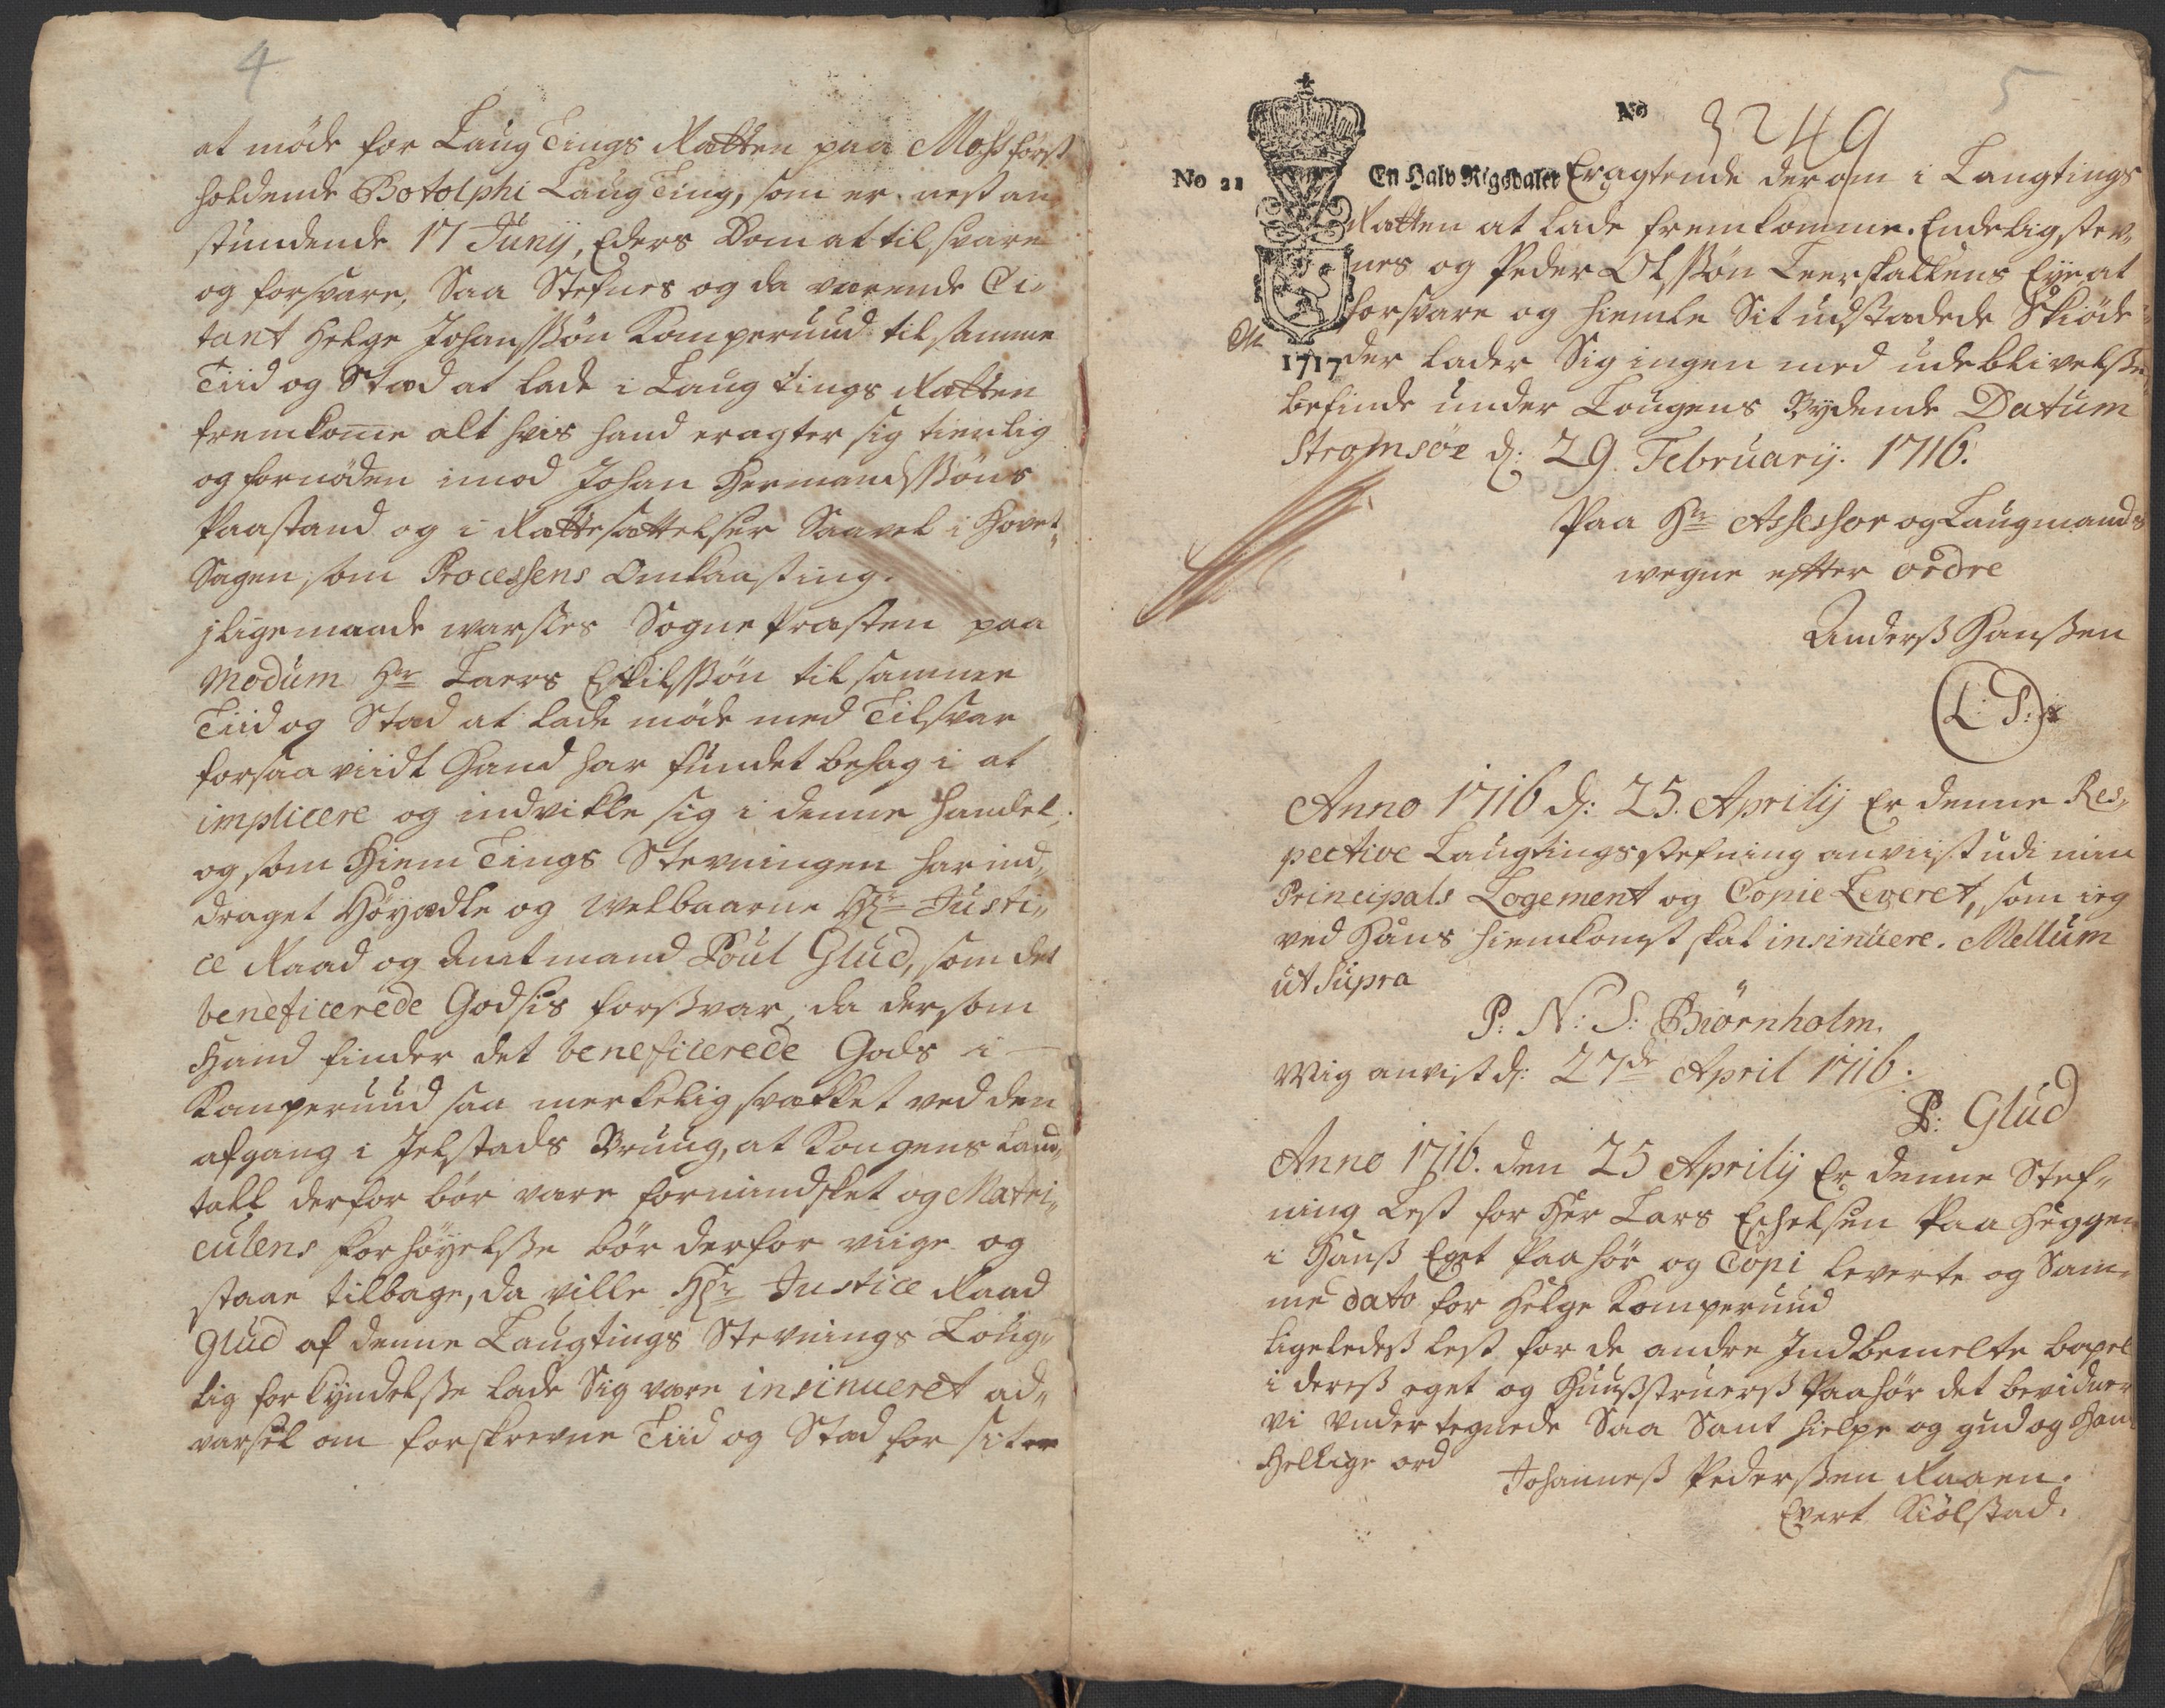 4
at möde for Laug Tings Retten paa Moss först
holdende Botolphi Laug Ting, som er nest an
stundende 17 Junij, Eders Dom at tilsvare
og forsvare, Saa Stefnes og da værende Ci„
tant Helge Johanssøn Komperuud til samme
Tiid og Stæd at lade i Laug tings Retten
fremkome alt hvis hand eragter sig tienlig
og fornöden imod Johan Hermandssøns
Paastand og i Rettesettelser Saavel i Hovet„
Sagen, som Processens Omkaasting.
jligemaade warsles Sogne Præsten paa
Modum Hr Laers Eskilssøn til samme
Tiid og Stæd at lade möde med Tilsvar
forsaaviidt Hand har fundet behag i at
implicere og indvikle sig i denne handel,
og som Hiem Tings Stevningen har ind„
draget Höyædle og welbaarne Hr Justi„
ce Raad og Amtmand Poul Glud, som det
beneficerede Godsis forsvar, da dersom
Hand finder det beneficerede Gods i
Komperuud saa merkelig svækket ved den
afgang i Jelstads Bruug, at Kongens Land„
tall derfor bör være formindsket og Matri„
culens Forhöyelsse bör derfor viige og
staae tilbage, da ville Hr Justice Raad
Glud af denne Laugtings Stevnings Loug„
lig forkyndelsse lade Sig være insinueret ad„
varsel om forskrevne Tiid og Stæd for sit
5
No 3249
No 21 En Halv Rigsdaler Eragtende derom i Laugtings
Retten at lade fremkomme. Endelig stev„
nes og Peder Olssøn Leerskallens Eye at
forsvare og hiemle Sit udstædede Skiöde
1717 der lader Sig ingen med udeblivelsse
befinde under Lougens Bydende Datum
Stromsöe d: 29. Februarij. 1716.
Paa Hr Assessor og Laugmands
wegne efter ordre
Anderss Hanssen
L: S:
Anno 1716 d: 25. Aprilij Er denne Res„
pective Laugtings stefning anviist udi min
Principals Logement og Copie Leveret, som ieg
ved Hans hiemkomst skal insinuere. Mellum
ut supra
P: N: S: Biörnholm.
Mig anvist d: 27de April 1716.
P: Glud
Anno 1716. den 25 Aprilij Er denne Stef„
ning Lest for Her Lars Eshelsen Paa Heggen
i Hanss Eget Paahör og Copi leverte og Sam„
me dato for Helge Komperuud
ligeledess lest for de andre Indbemelte
i deress eget og Huusstruerss Paahör det bevidner
vi under tegnede Saa Sant hielpe og gud og Hans
Hellige ord
Johanness Pederssen Raaen.
Evert Kiölstad.